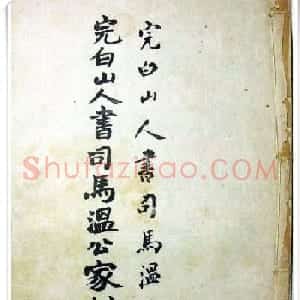 完白山人書司馬溫
完白山人書司馬溫公家
Shufazidao.COM